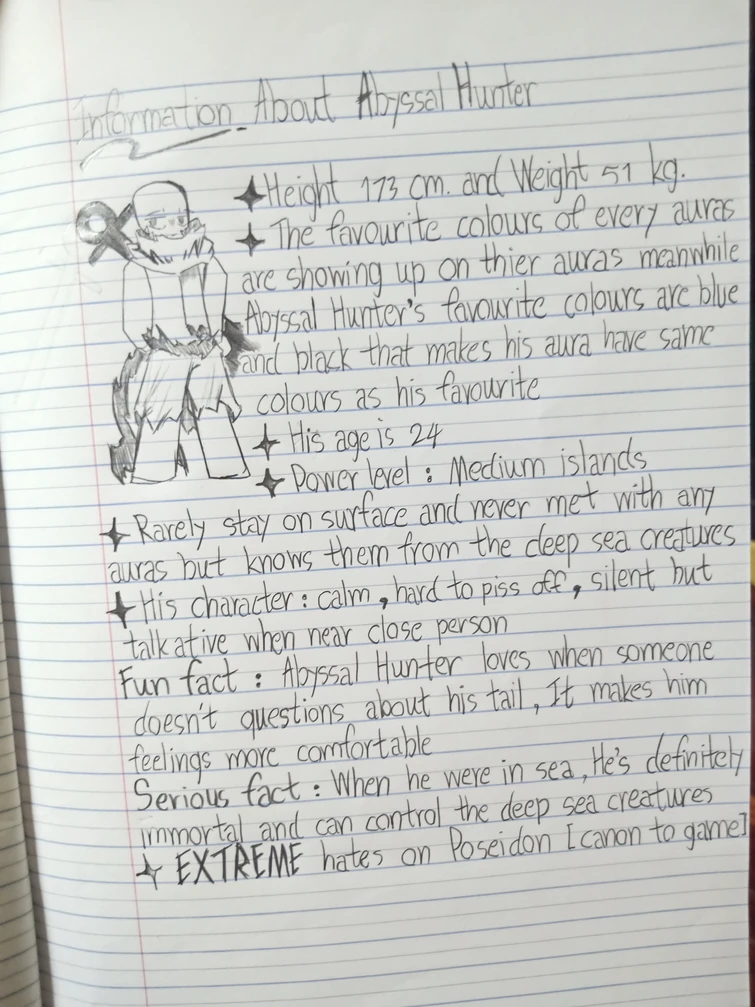 Information About Abyssal Hunter
✦Height 173 cm. and Weight 51 kg.
✦ The favourite colours of every auras
are showing up on thier auras meanwhile
Abyssal Hunter's favourite colours are blue
and black that makes his aura have same
colours as his favourite
✦ His age is 24
✦ Power level : Medium islands
✦ Rarely stay on surface and never met with any
auras but knows them from the deep sea creatures
✦ His character : calm, hard to piss off, silent but
talkative when near close person
Fun fact : Abyssal Hunter loves when someone
doesn't questions about his tail, It makes him
feelings more comfortable
Serious fact : When he were in sea, He's definitely
immortal and can control the deep sea creatures
✦ EXTREME hates on Poseidon [canon to game]